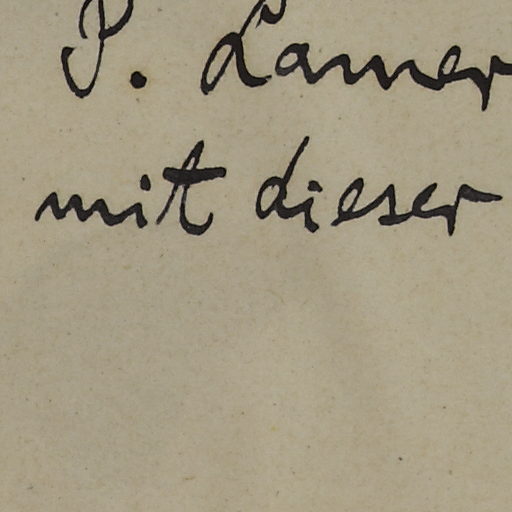 P. Lamer
mit dieser